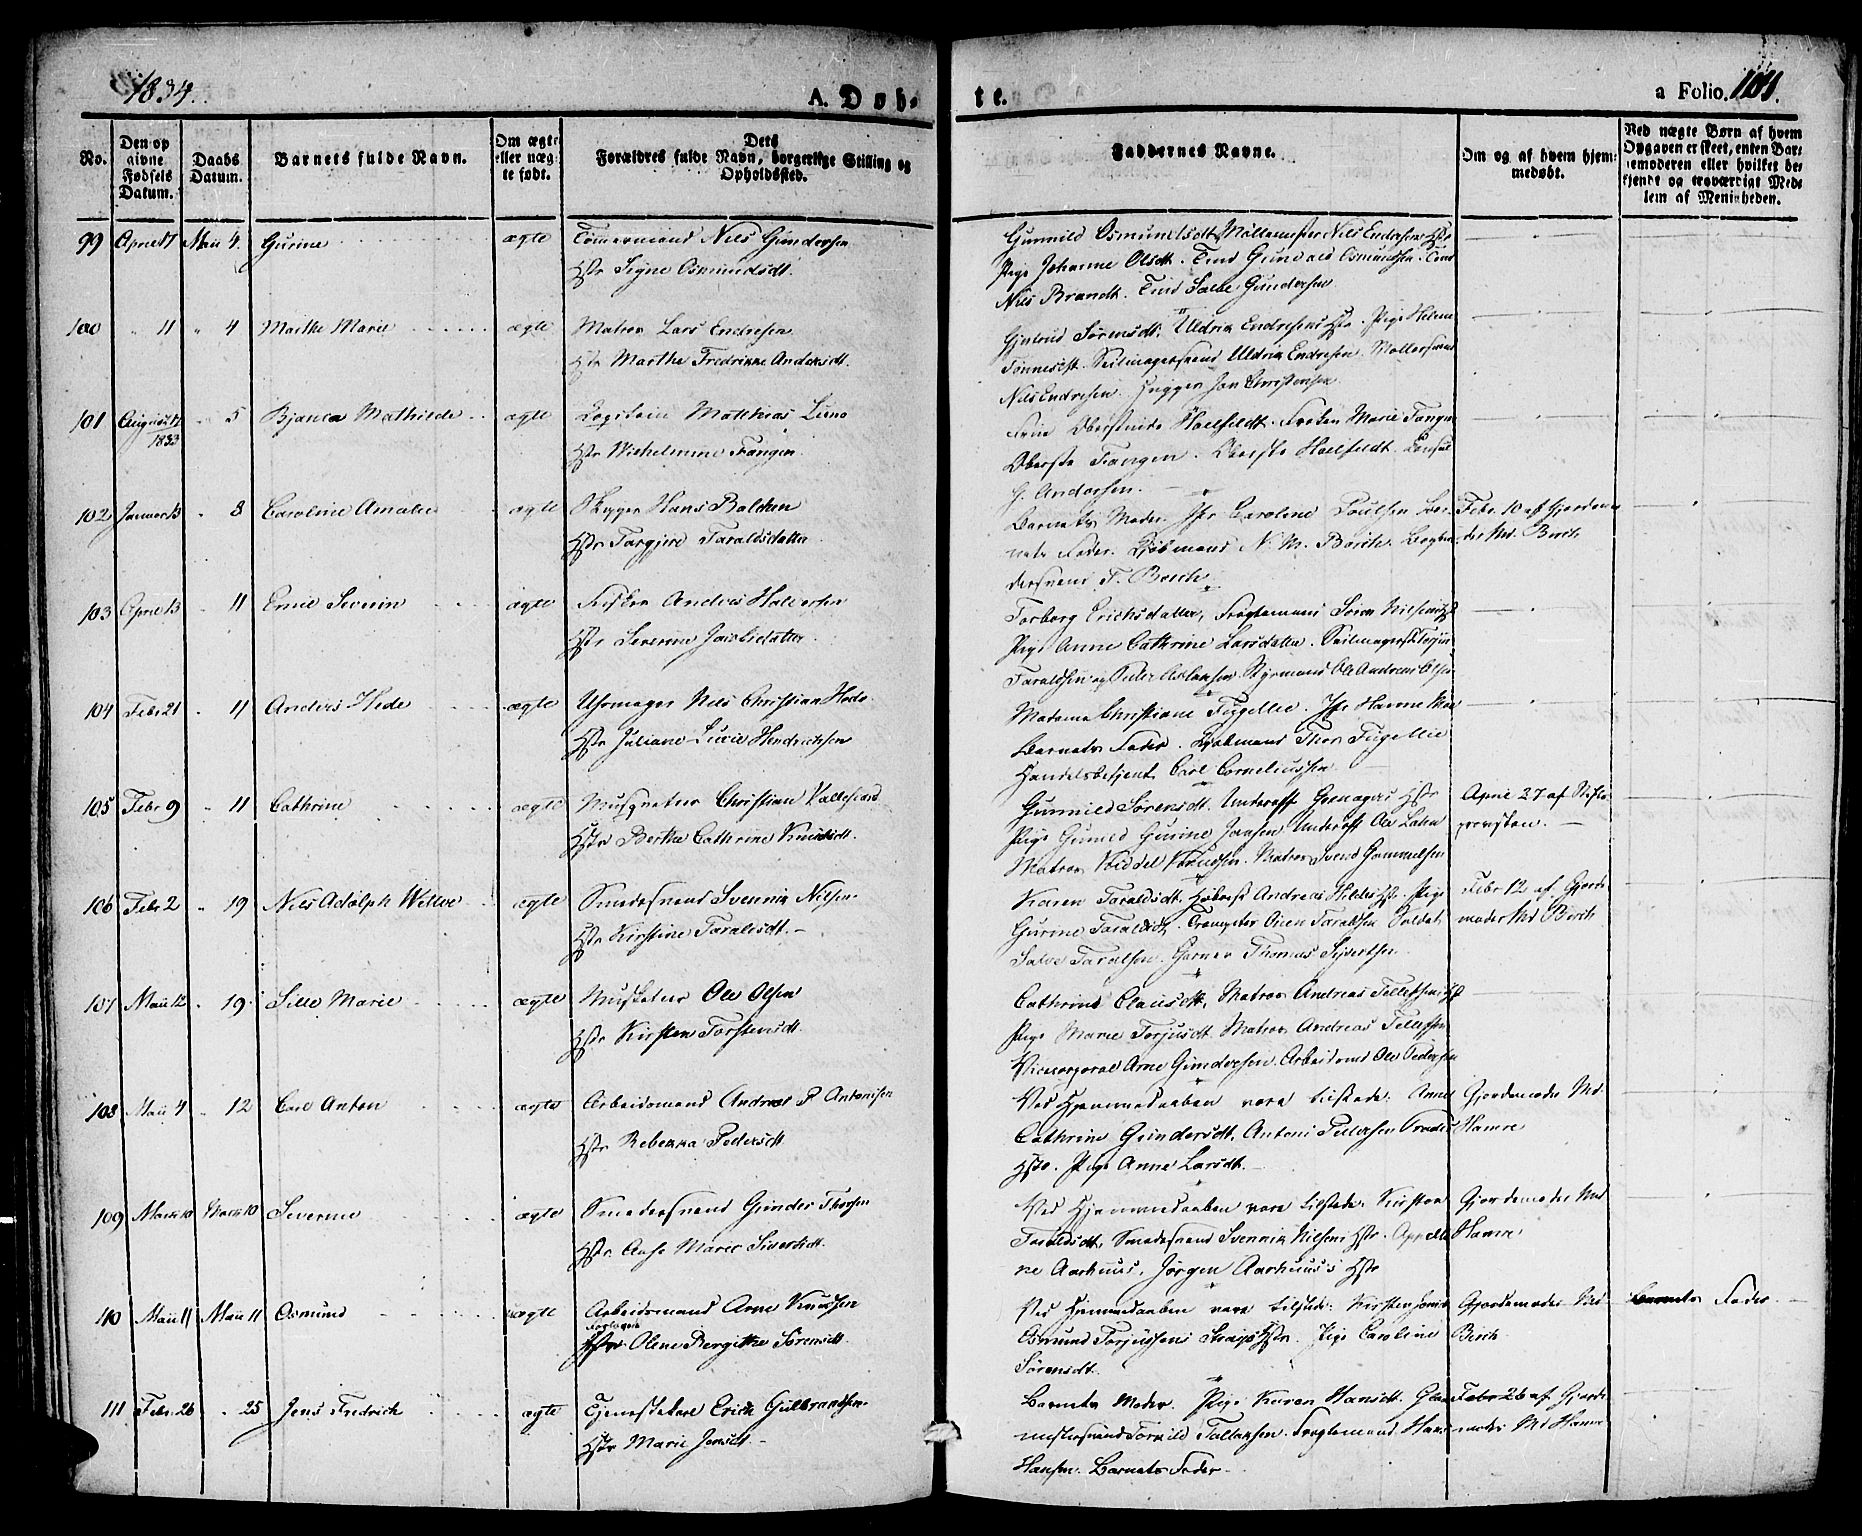 1834.
A. Døb-
te.
a Folio. 101.
No.
Den op
givne
Fødsels
Datum.
Daabs
Datum.
Barnets fulde Navn.
Om ægte
eller uæg-
te født.
Dets
Forældres fulde Navn, borgerlige Stilling og
Opholdssted.
Faddernes Navne.
Om og af hvem hjem-
medøbt.
Ved uægte Børn af hvem
Opgaven er skeet, enten Bar-
nemoderen eller hvilket be-
kjendt og troværdigt Med-
lem af Menigheden.
99 April 17 Maii 4. Gurine ægte Tømermand Niels Gundersen
Hstr Signe Osmundsdt.
Gunnild Osmundsdt. Møllemester Niels Endresens Hst
Pige Johanne Olsdt. Tind Gunvald Osmundsen. Tind
Niels Brandt. Tind Salve Gundersen
100 " 11 " 4 Marthe Marie ægte Matros Lars Endresen
Hstr Marthe Fredrikke Andersdt.
Sørensdt. Uldrik Endresens Hstr. Pige Helene
Tønnesdt. Seilmagersvend Uldrik Endresen. Møllersvend
Niels Endresen. Hugger Jan Christensen
101 August 17
1833
" 5 Bjanca Mathilde ægte Capitain Matthias Lund
Hstr Wilhelmine Fangen
Frue Oberstinde Haelfeldt. Frøken Marie Fangen
Oberste Fangen. Oberste Haelfeldt. Consul
G. Andersen.
102 Januar 13 " 8 Caroline Amalie ægte Skipper Hans Balchen
Hstr Targjerd Taraldsdatter
Barnets Moder. Jfr Caroline Poulsen Bar-
nets Fader. Kjøbmand N. M. Borch. Bogbin-
dersvend F. Borch
Febr. 10 af Gjordemo-
der Md. Birch
103 April 13 " 11 Emil Severin ægte Fisker Anders Halvorsen
Hstr Severine Jacobsdatter
Torborg Erichsdatter, Fragtemand Søren Nilsens Hst
Pige Anne Cathrine Larsdatter. Seilmagersv. Torjus
Taraldsen og Peder Aslaksen. Styrmand Ole Andreas Olsen
104 Febr 21 " 11 Anders Hede ægte Uhrmager Niels Christian Hede
Hstr Juliane Lucie Hendrichsen
Madame Christiane Fugellie. Jfr Hanne
Barnets Fader. Kjøbmand Thor Fugellie
Handelsbetjent Carl Corneliussen
105 Febr 9 " 11 Cathrine ægte Musqueteer Christian
Hstr Berthe Cathrine Knudsdt.
Gunnild Sørensdt. Underoff Hstr
Pige Gunild Gurine Jansen Underoff Ole
Matros Knudsen. Matros Svend Gammelsen
April 27 af Stifts-
provsten.
106 Febr 2 " 19 Niels Adolph ægte Smedesvend Svennik Nilsen
Hstr Kirstine Taraldsdt.
Karen Taraldsdt. Andreas Hilds Hst. Pige
Gurine Taraldsdt. Trompeter Oien Taraldsen Soldat
Salve Taralsen. Garver Thomas Sivertsen
Febr 12 af Gjorde-
moder Md Birch
107 Maii 12 " 19 Sille Marie ægte Musketeer Ole Olsen
Hstr Kirsten Torstensdt.
Cathrine Olausdt. Matros Andreas Tellefsens Hst
Pige Marie Torjusdt. Matros Andreas Tellefsen
Vicecorporal Arne Gundersen. Arbeidsmd Ole Pedersen
108 Maii 4 " 12 Carl Anton ægte Arbeidsmand Andreas P. Antonisen
Hstr Rebekka Pedersdt
Ved Hjemmedaaben vare tilstede: Anne
Cathrine Gundersdt. Antoni Pedersen
Hstr. Pige Anne Larsdt.
Gjordemoder Md.
Hamre
109 Marts 10 Marts 10 Severine ægte Smedesvend Gunder Thorsen
Hstr Anse Marie Sivertsdt.
Ved Hjemmedaaben vare tilstede: Kirstine
Taraldsdt. Smedesvend Svennik Nielsens Hstr. Appollo-
ne Aarhuus, Jørgen Aarhuus's Hstr
Gjordemoder Md
Hamre
110 Maii 11 Maii 11 Osmund ægte Arbeidsmand Arne Knudsen
Hstr Olene Bergitthe Sørensdt.
Ved Hjemmedaaben vare tilstede: Kirsten
Osmund Torjussens Hstr. Pige Caroline
Sørensdt.
Gjordemoder Md
Birch
Barnets Fader.
111 Febr. 26 " 25 Jens Fredrich ægte Tjenestekarl Erich Gulbrandsen
Hstr Marie Jensdt.
Barnets Moder. Pige Karen Hansdt. Glar-
mestersvend Tarald Tallaksen. Fragtemand Hans
Hansen. Barnets Fader.
Febr 26 af Gjorde-
moder Md Hamre